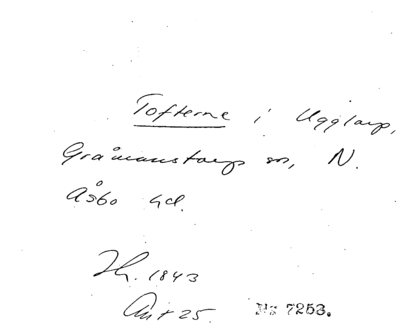 Tofterne i Ugglarp,
Gråmanstorps sn, N.
Åsbo hd.
Th. 1843
Akt 25. Nr 7253.